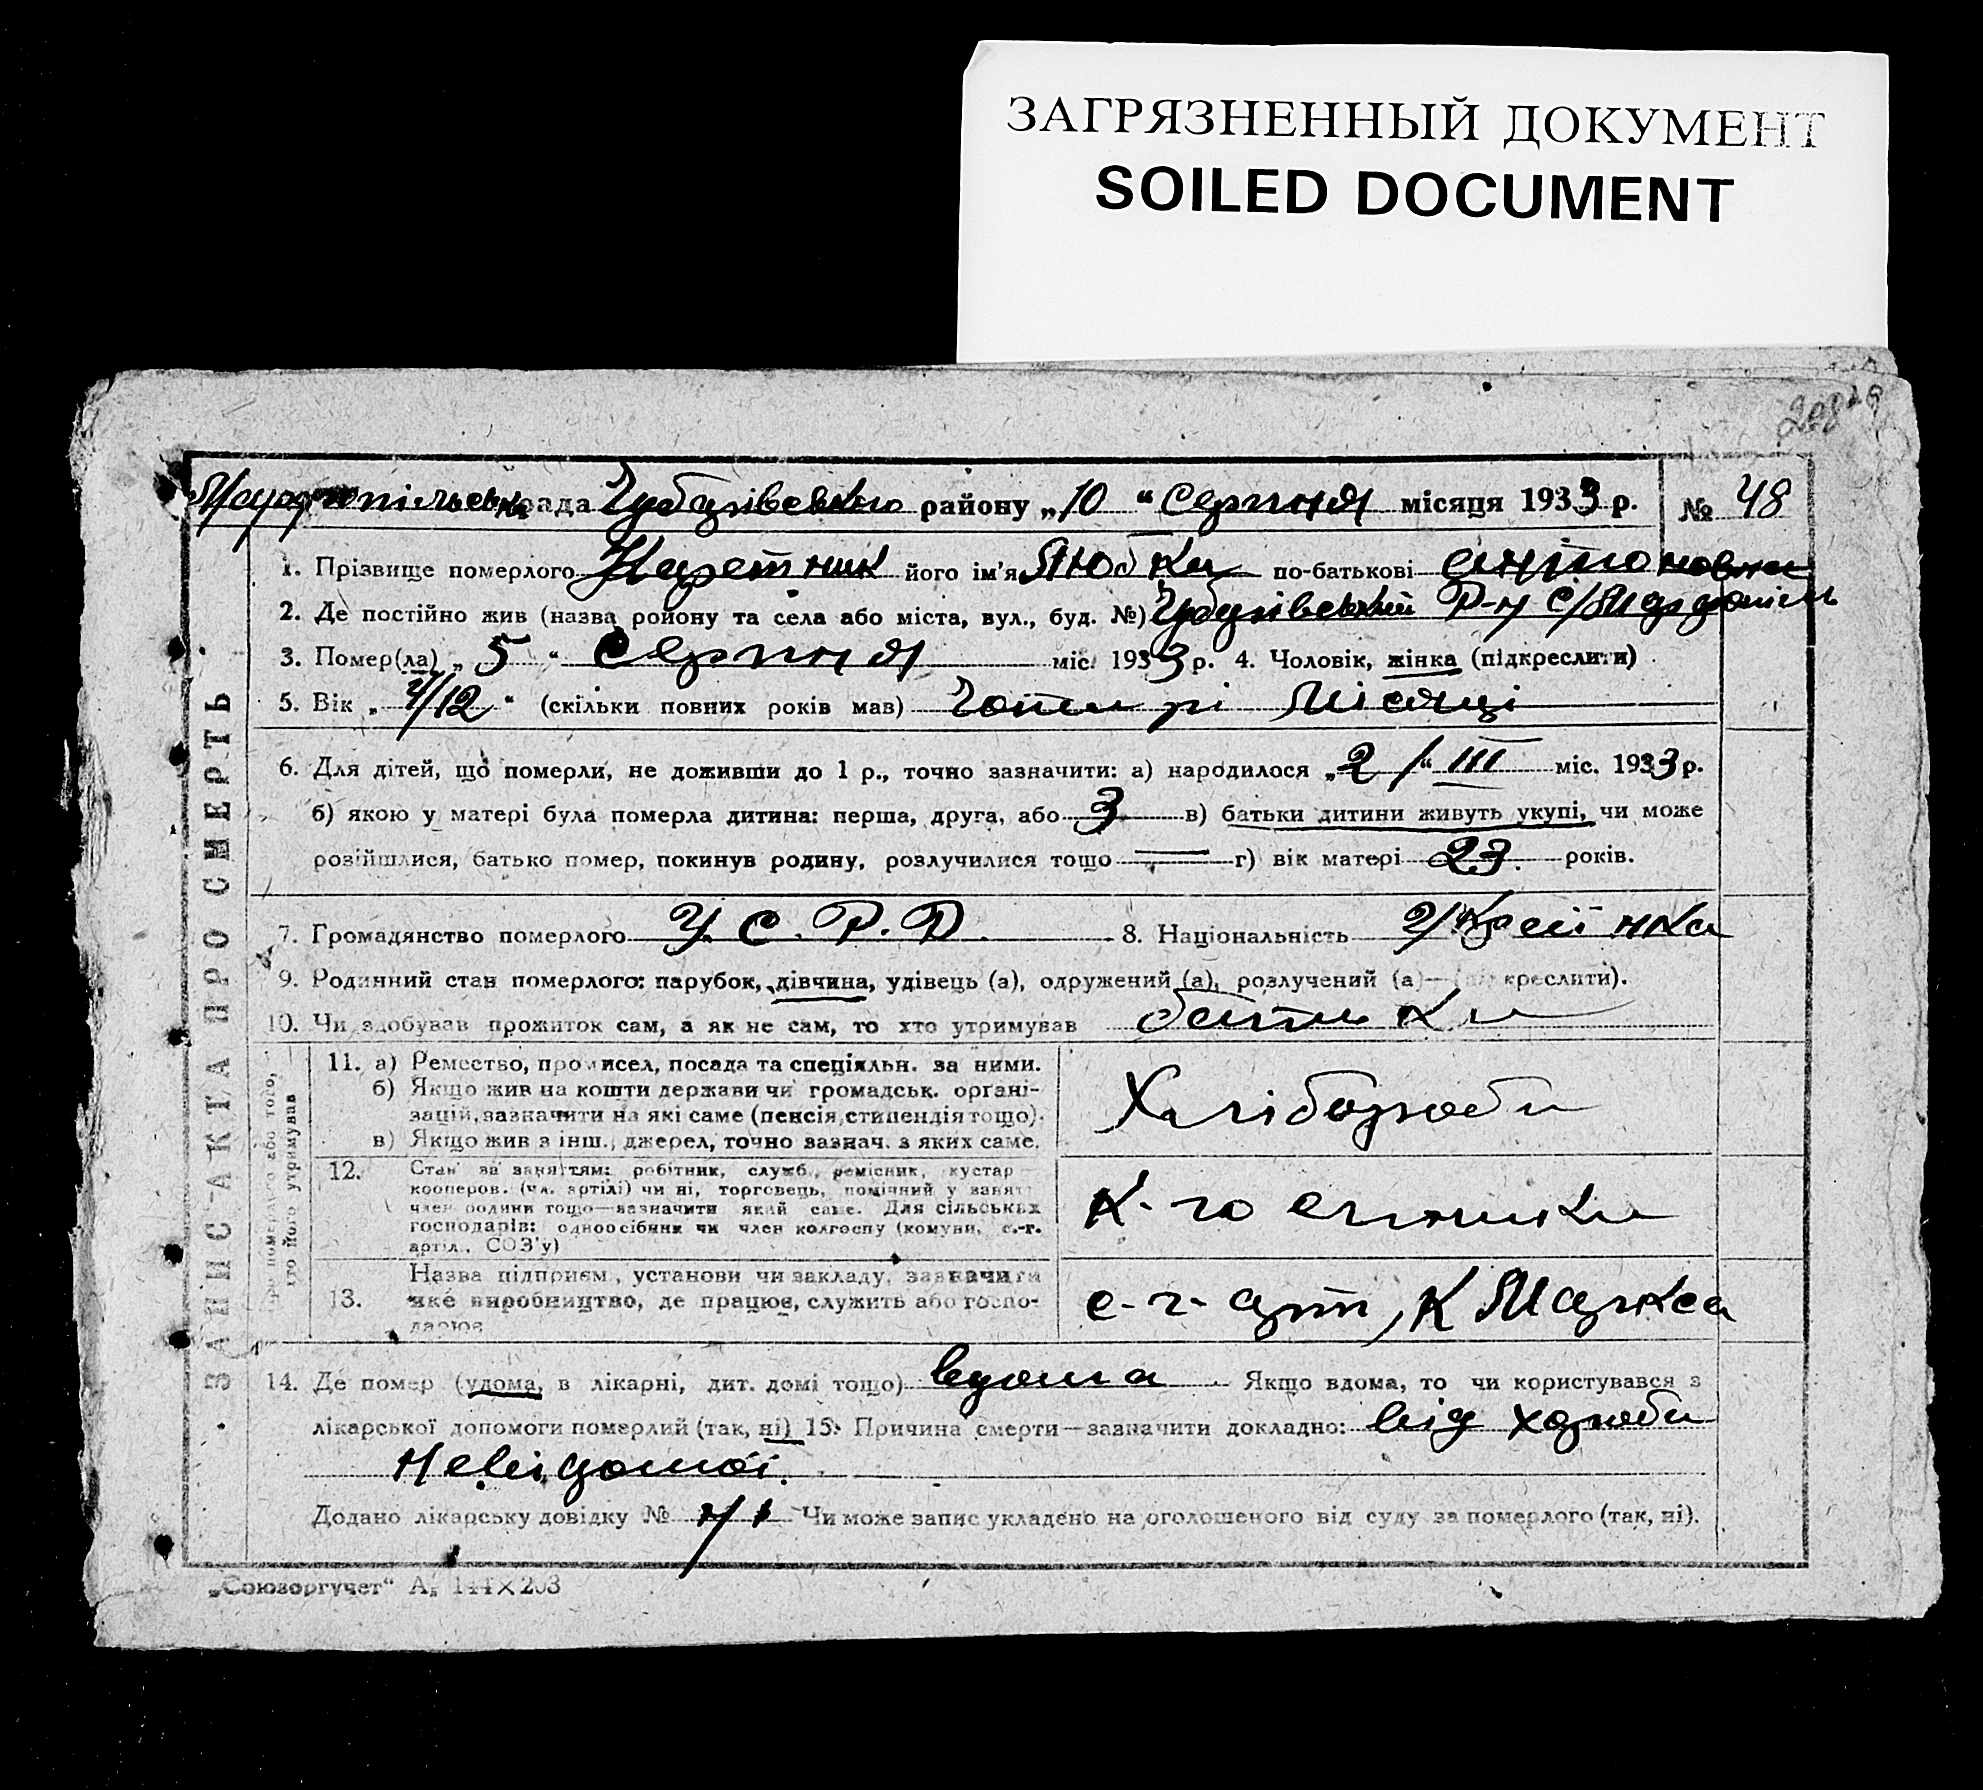 ЗАГРЯЗНЕННЫЙ ДОКУМЕНТ
SOILED DOCUMENT
рада Чубарівського району „10 “ Серпня місяця 1933 р. № 48
1. Прізвище померлого Каретник його ім'я Любка по-батькові Антоновна
2. Де постійно жив (назва району та села або міста, вул., буд. №) Чубарівський Р-н с/
3. Помер(ла) „ 5 “ Серпня міс. 1933 р. 4. Чоловік, жінка (підкреслити)
5. Вік „ 4/12 “ (скільки повних років мав) Чотирі місяці
6. Для дітей, що померли, не доживши до 1 р., точно зазначити: а) народилося „ 2 /“ III міс. 1933 р.
б) якою у матері була померла дитина: перша, друга, або 3 в) батьки дитини живуть укупі, чи може
розійшлися, батько помер, покинув родину, розлучилися тощо — г) вік матері 23 років.
7. Громадянство померлого У. С. Р. Р. 8. Національність Українка
9. Родинний стан померлого: парубок, дівчина, удівець (а), одружений (а), розлучений (а)— креслити).
10. Чи здобував прожиток сам, а як не сам, то хто утримував батьки
11. а) Ремество, промисел, посада та спеціяльн. за ними.
б) Якщо жив на кошти держави чи громадськ. органі-
зацій, зазначити на які саме (пенсія, стипендія тощо).
в) Якщо жив з інш., джерел, точно зазнач. з яких саме.
Хлібороби
12. Стан за заняттям: робітник, служб., ремісник, кустар
кооперов. (чл. артілі) чи ні, торговець, помічний у занят
член родини тощо—зазначити який саме. Для сільських
господарів: одноосібник чи член колгоспу (комуни, с.-г.
артіл., СОЗ'у)
к-госпники
13. Назва підприєм., установи чи закладу, зазначити
яке виробництво, де працює, служить або госпо-
дарює
с-г- арт, К Маркса
14. Де помер (удома, в лікарні, дит. домі тощо) вдома Якщо вдома, то чи користувався з
лікарської допомоги померлий (так, ні) 15. Причина смерти—зазначити докладно: від хороби
невідомої.
Додано лікарську довідку № Чи може запис укладено на оголошеного від суду за померлого (так, ні).
„Союзоргучет“ А₅ 144×203
ЗАПИС АКТА ПРО СМЕРТЬ
Про померлого або того,
хто його утримував